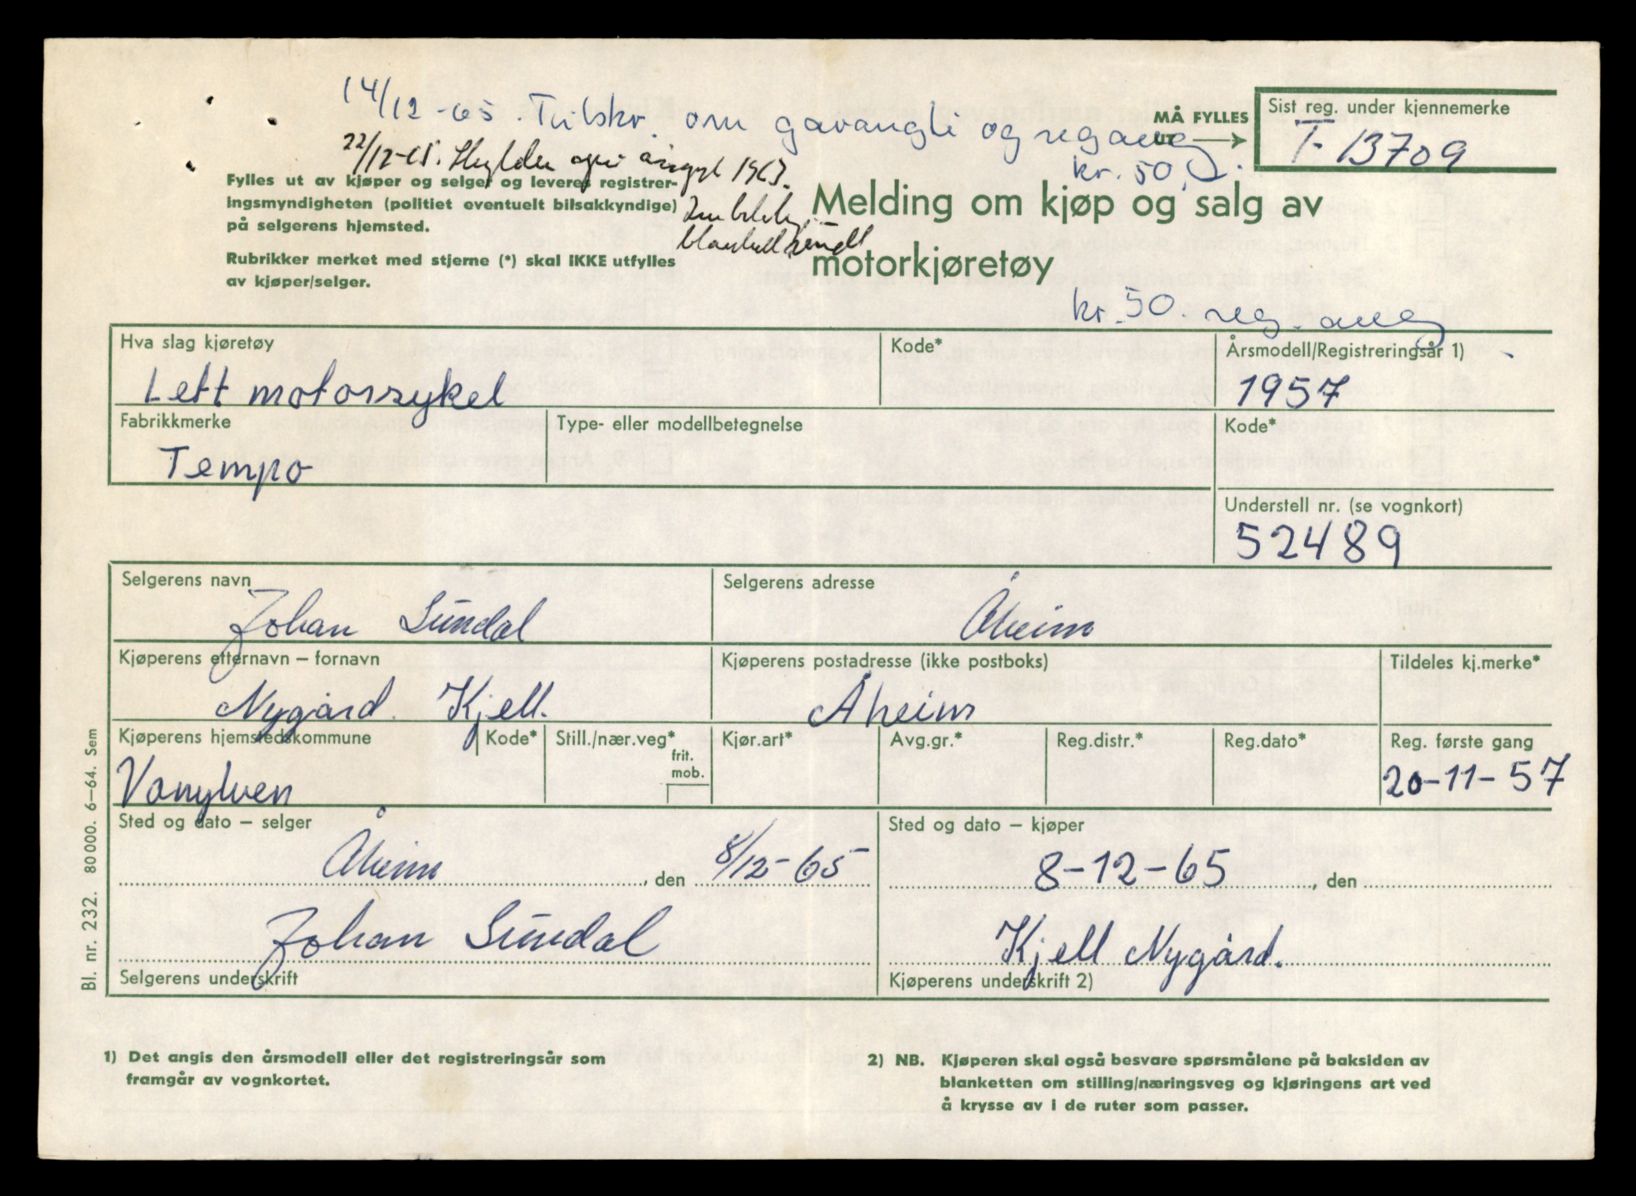 14/12-65. Tilskr. om garanti og reg avg
kr. 50,-.
MÅ FYLLES
UT
Sist reg. under kjennemerke
T-13709
22/12-65.
1963.
Fylles ut av kjøper og selger og leveres registrer-
ingsmyndigheten (politiet eventuelt bilsakkyndige)
på selgerens hjemsted.
Rubrikker merket med stjerne (*) skal IKKE utfylles
av kjøper/selger.
Melding om kjøp og salg av
motorkjøretøy
kr. 50. reg. avg
Hva slag kjøretøy
Lett motorsykel
Kode*
Årsmodell/Registreringsår 1)
1957
Fabrikkmerke
Tempo
Type- eller modellbetegnelse
Kode*
Understell nr. (se vognkort)
52489
Selgerens navn
Johan Sundal
Selgerens adresse
Åheim
Kjøperens etternavn – fornavn
Nygård. Kjell.
Kjøperens postadresse (ikke postboks)
Åheim
Tildeles kj.merke*
Kjøperens hjemstedskommune
Vanylven
Kode*
Still./nær.veg*
frit.
mob.
Kjør.art*
Avg.gr.*
Reg.distr.*
Reg.dato*
Reg. første gang
20-11-57
Sted og dato – selger
Åheim, den 8/12-65
Sted og dato – kjøper
8-12-65, den
Johan Sundal
Selgerens underskrift
Kjell Nygård.
Kjøperens underskrift 2)
Bl. nr. 232. 80000. 6–64. Sem
1) Det angis den årsmodell eller det registreringsår som
framgår av vognkortet.
2) NB. Kjøperen skal også besvare spørsmålene på baksiden av
blanketten om stilling/næringsveg og kjøringens art ved
å krysse av i de ruter som passer.